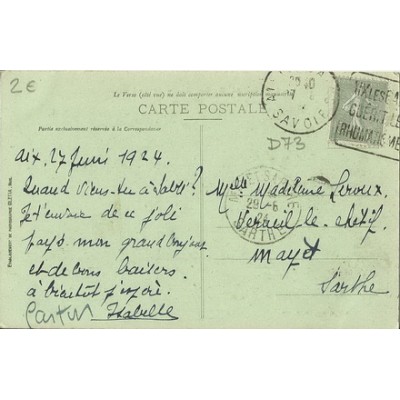 2€
Le Verso (côté vue) ne doit comporter aucune inscription manuscrite
CARTE POSTALE
Partie exclusivement réservée à la Correspondance
D73
SAVOIE
AIX LES BAINS
GUÉRIT LE
RHUMATISME
Aix, 27 Juin 1924.
Quand viens-tu
Je t'envoie de ce joli
pays mon grand bonjour
et de bons baisers.
à bientôt j'espère.
Isabelle
29-6
24
SARTHE
Melle Madeleine Leroux
Verneil-le-chétif
Mayet
Sarthe